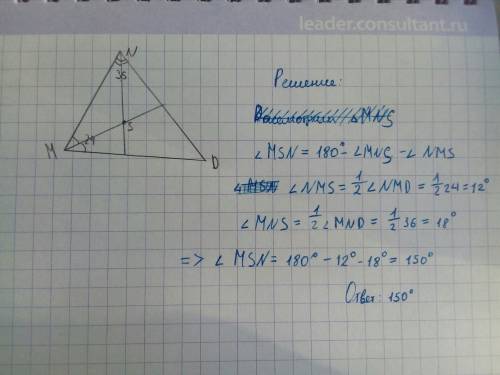 leader.consultant.ru
N
36
M
24
S
D
Решение:
∠MSN = 180° - ∠MNS - ∠NMS
∠NMS = 1/2 ∠NMD = 1/2 24 = 12°
∠MNS = 1/2 ∠MND = 1/2 36 = 18°
=> ∠MSN = 180° - 12° - 18° = 150°
Ответ: 150°